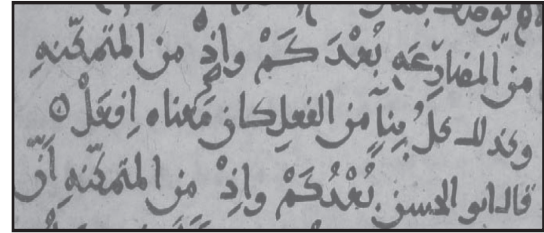 من المضارعه بُعْدَ كَمْ واِذْ من المتمكّنه
وكذلك كلُّ بِنآءٍ من الفعلِ كان مَعناه اِفعَلْ
قال ابو الحسن بُعْدُ كَمْ واِذْ من المتمكّنه اَنّ